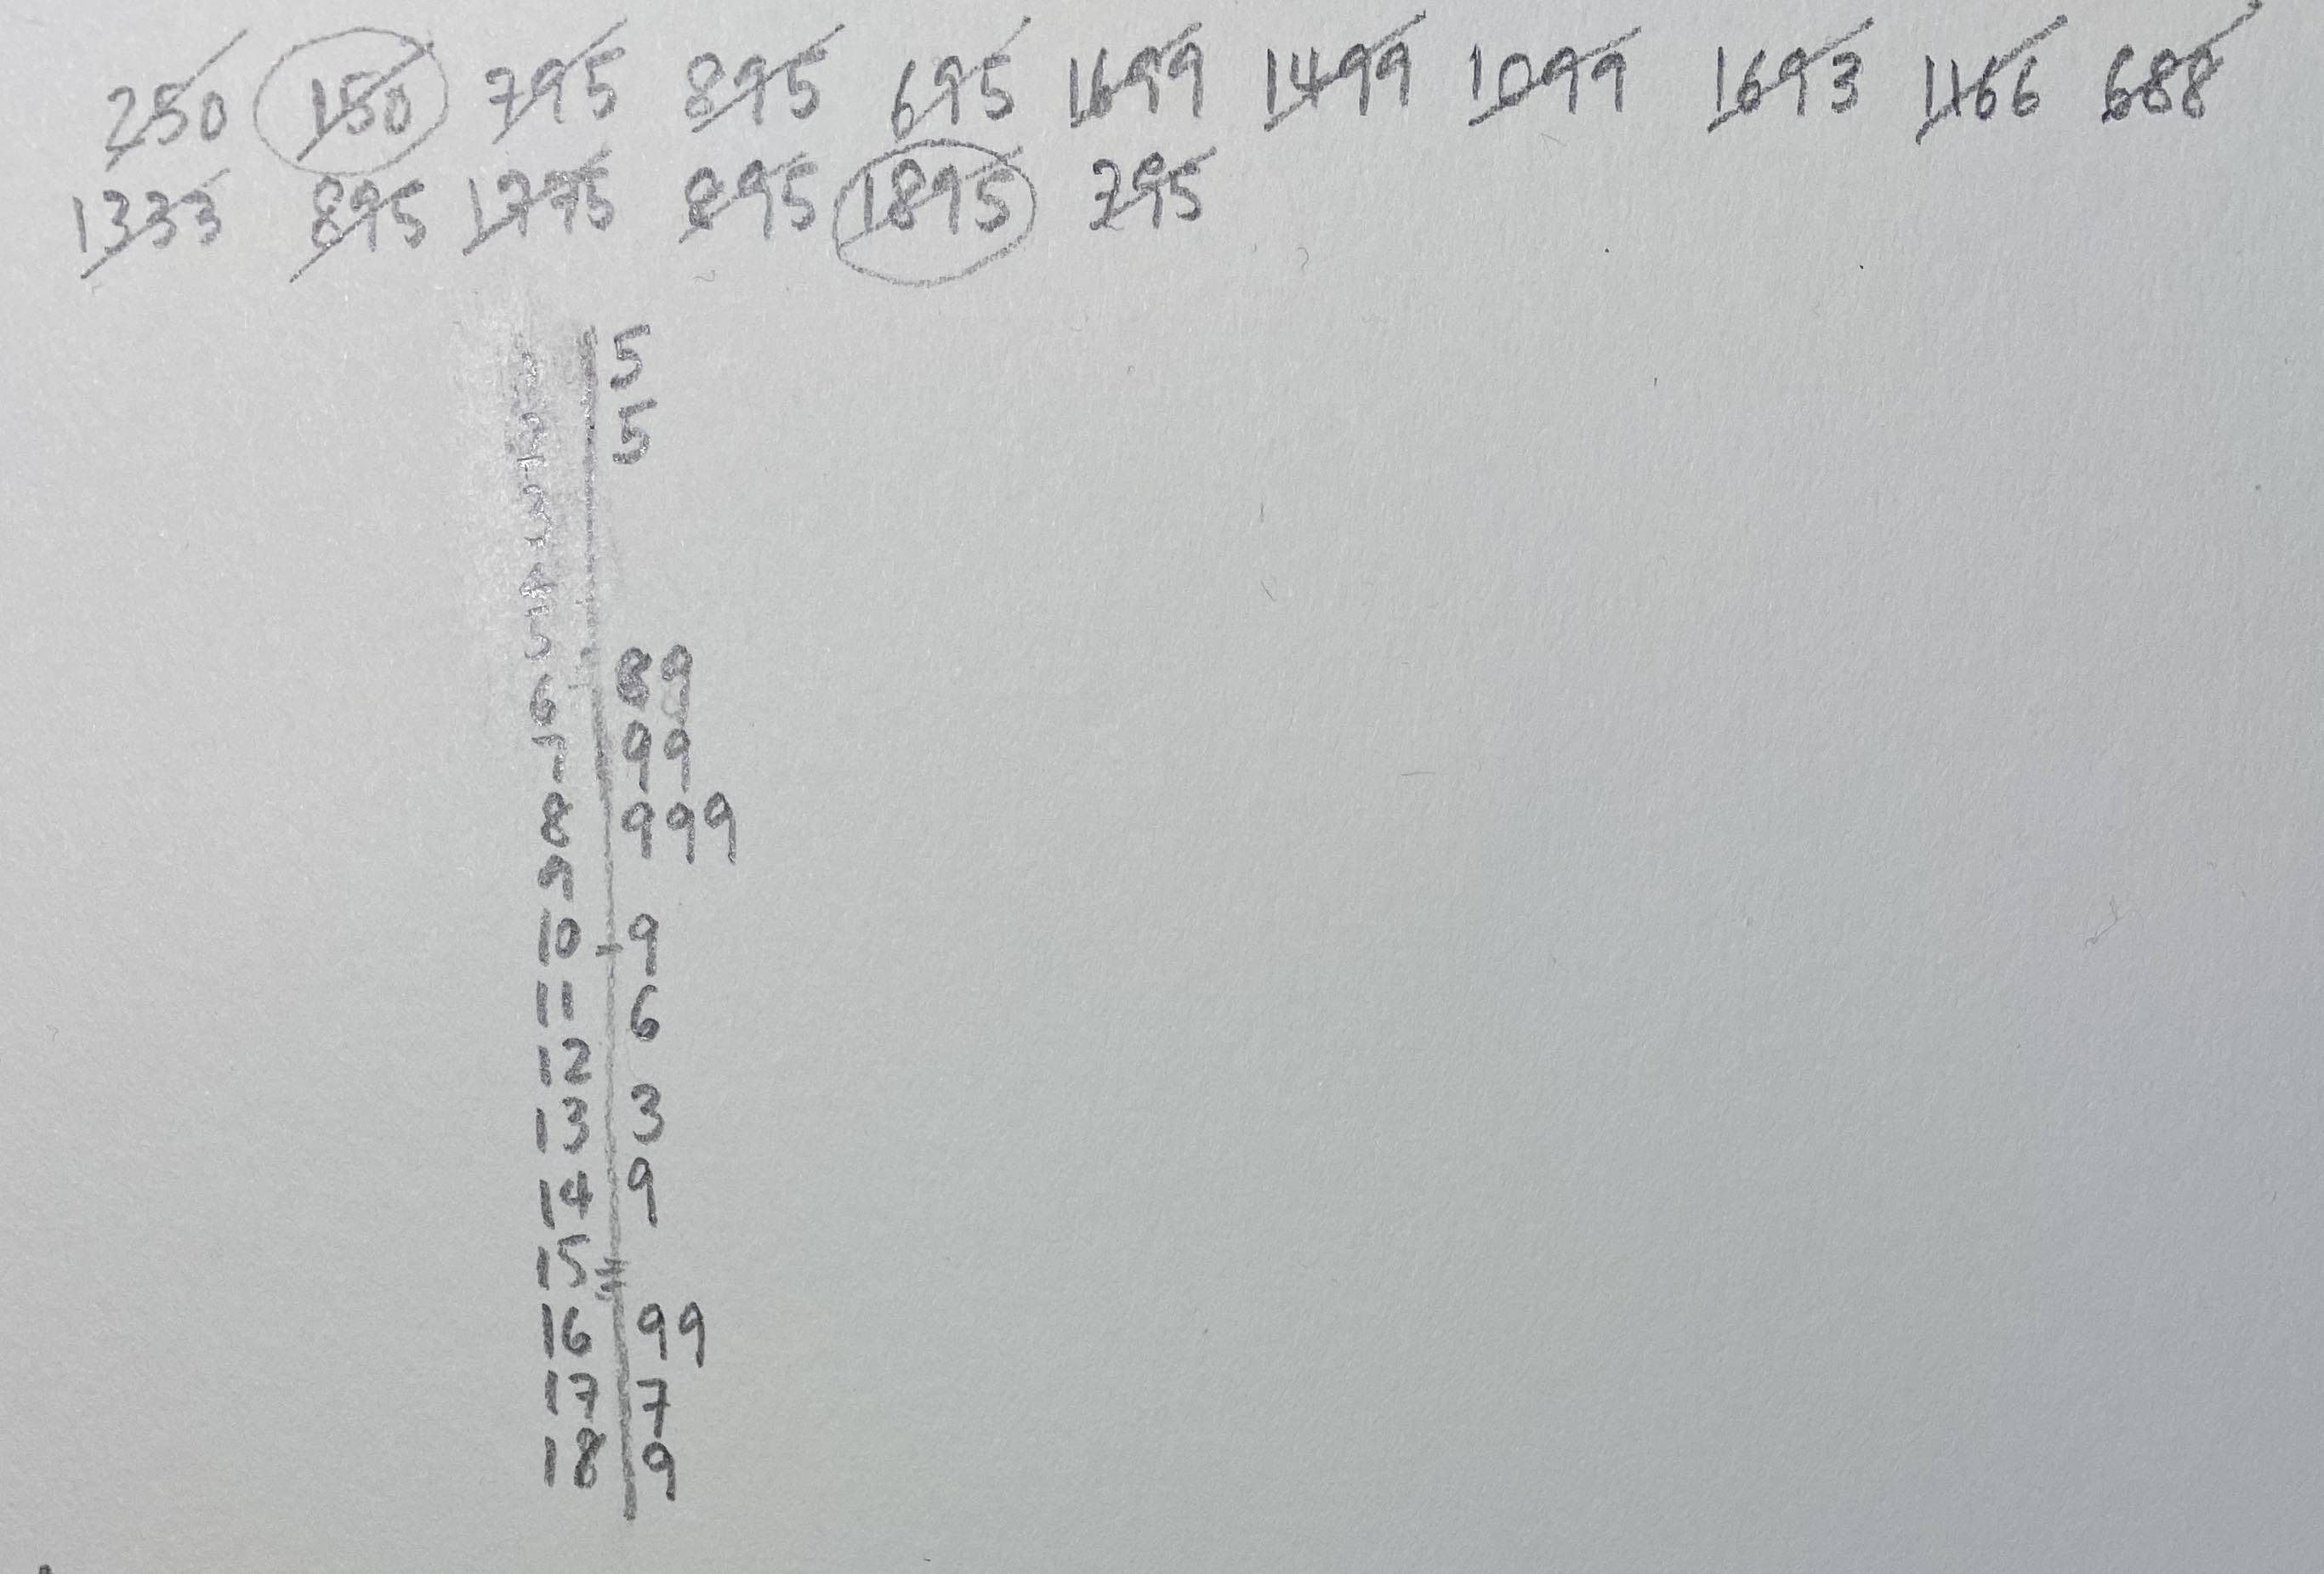 250 150 795 895 695 1699 1499 1099 1693 1166 688
1333 895 1775 895 1895 795
1 | 5
2 | 5
3 |
4 |
5 |
6 | 89
7 | 99
8 | 999
9 |
10 | 9
11 | 6
12 |
13 | 3
14 | 9
15 |
16 | 99
17 | 7
18 | 9